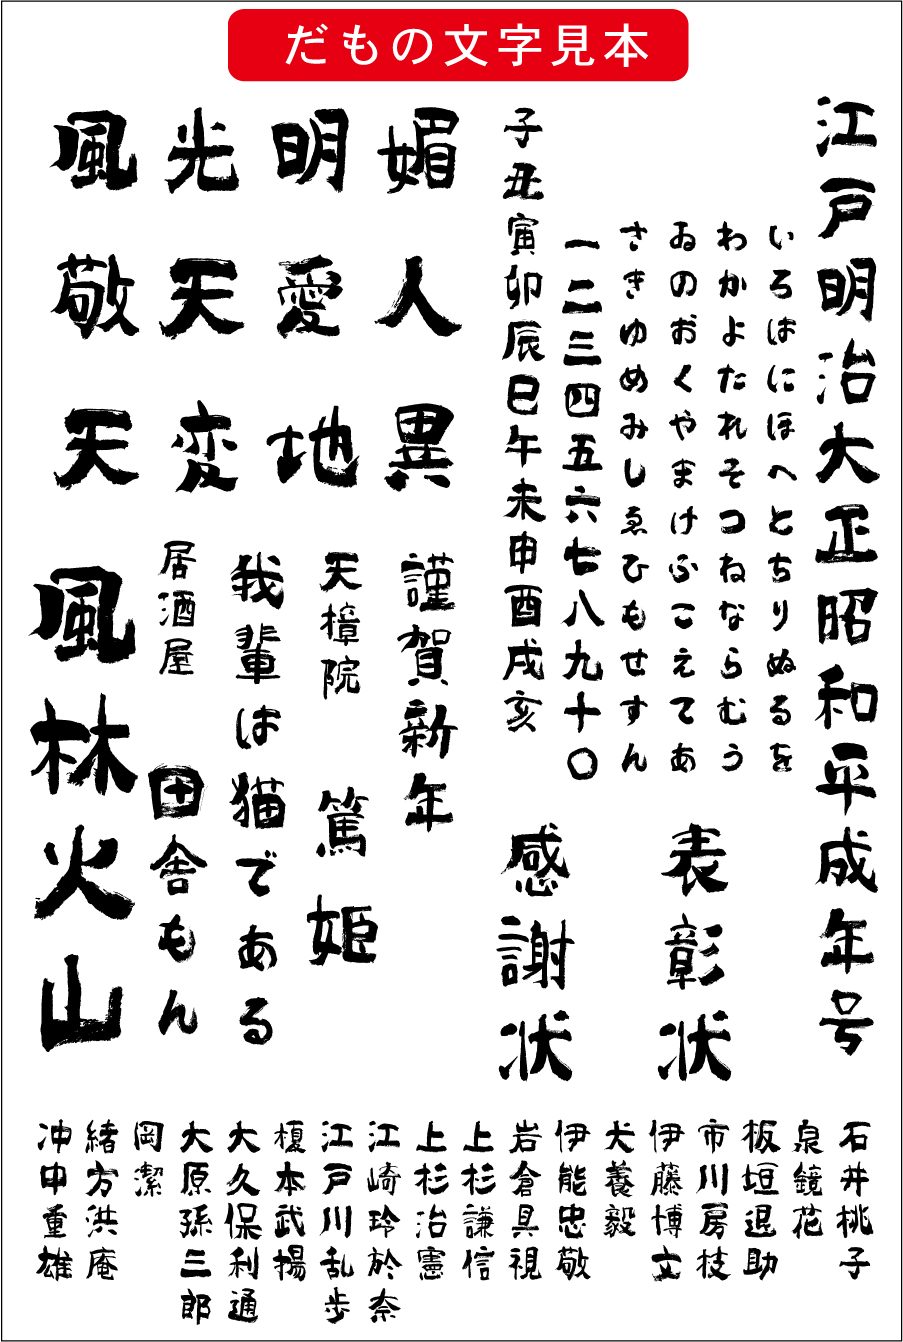 だもの文字見本
江戸明治大正昭和平成年号
いろはにほへとちりぬるを
わかよたれそつねならむう
ゐのおくやまけふこえてあ
さきゆめみしゑひもせすん
一二三四五六七八九十〇
子丑寅卯辰巳午未申酉戌亥
表彰状
感謝状
媚人異
明愛地
光天変
風敬天
謹賀新年
天樟院
篤姫
我輩は猫である
居酒屋
田舎もん
風林火山
石井桃子
泉鏡花
板垣退助
市川房枝
伊藤博文
犬養毅
伊能忠敬
岩倉具視
上杉謙信
上杉治憲
江崎玲於奈
江戸川乱歩
榎本武揚
大久保利通
大原孫三郎
岡潔
緒方洪庵
沖中重雄